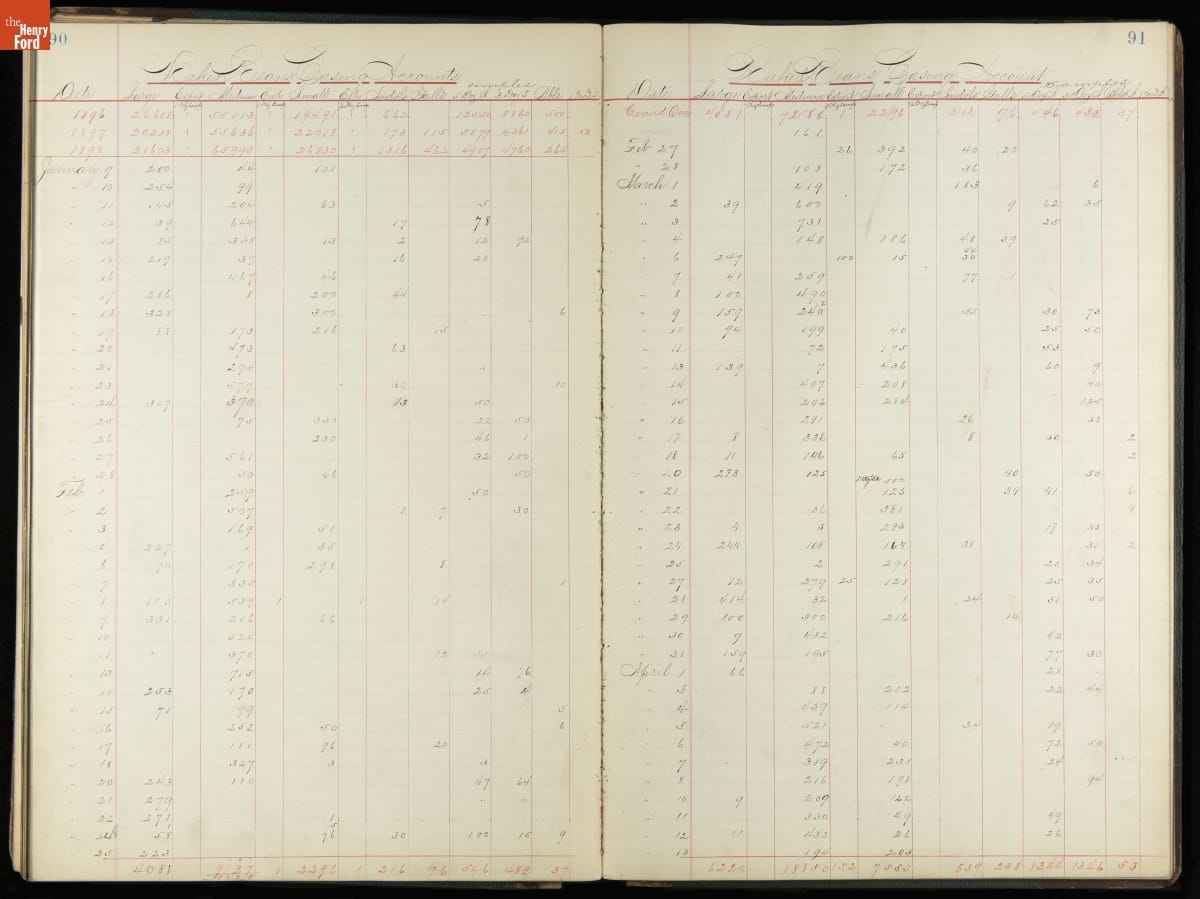 the
Henry
Ford
90
Baked Beans Casing Accounts
samples
Date Large Export Medium Exp. Small Exp. Ind'ls Halls 5 3 Ible
1896 26608 " 55113 " 19491 " 662 12550 8860 500
1897 20238 " 55636 " 22018 " 173 115 5879 4361 415 52
1898 21603 " 65990 " 26830 " 1316 462 4907 4760 264
January 9 200 44 101
" 10 254 99
" 11 145 204 63 5
" 12 39 644 17 78
13 85 338 13 2 12 92
" 14 219 37 16 28
16 467 46
" 17 286 8 200 44
" 18 328 300 6
" 19 88 173 286 15
" 20 473 63
" 21 294 1
" 23 577 30 10
" 24 307 370 13 50
" 25 75 330 22 50
" 26 230 46 1
" 27 561 32 100
" 28 50 46 50
Feb 1 259 50
" 2 507 1 7 30
" 3 169 51
" 4 227 1 38
" 6 70 170 298 8
" 7 335 1
" 8 103 539 1 1 14
" 9 331 216 66
" 10 524
" 11 370 12
" 13 715 14 76
" 14 253 170 25 4
" 15 78 99 5
" 16 252 50 6
" 17 111 96 20
" 18 327 3 3
" 20 243 110 47 64
" 21 279 " "
" 22 271 1
" 24 58 76 30 100 15 9
" 25 223
4081 1 2296 1 216 76 546 482 37
91
Baked Beans Casing Account
samples
Date Large Export Medium Export Small Export Ind'ls Halls
Carried Over 4081 9288 1 2296 216 76 546 482 37
161
Feb 27 26 392 40 20
" 28 108 172 36
March 1 419 183 6
" 2 39 600 9 62 35
" 3 731 25
" 4 148 186 48 39
" 6 247 100 15 30
7 41 259 77 1
" 8 100 490
" 9 159 240 55 30 73
" 10 94 199 40 25 50
" 11 72 175 53
" 13 139 7 436 60 9
" 14 407 208 40
" 15 202 284 125
" 16 291 26 53
" 17 8 336 8 50 2
18 11 146 65 2
" 20 233 125 500 40 50
" 21 125 39 41 6
" 22 136 381 9
" 23 4 5 293 17 53
" 24 244 108 164 38 31 2
" 25 2 291 20 34
" 27 12 279 25 128 25 35
" 28 414 32 1 24 31 50
" 29 100 300 216 14
" 30 9 432 42
" 31 159 195 77 30
April 1 66 28
" 3 88 202 22 44
" 4 439 114
" 5 521 34 19
" 6 472 40 72 50
" 7 389 231 24
" 8 216 198 94
" 10 9 209 122
" 11 330 49 49
" 12 11 433 26 26
" 13 194 203
6220 18350 152 7555 839 258 1344 1346 53